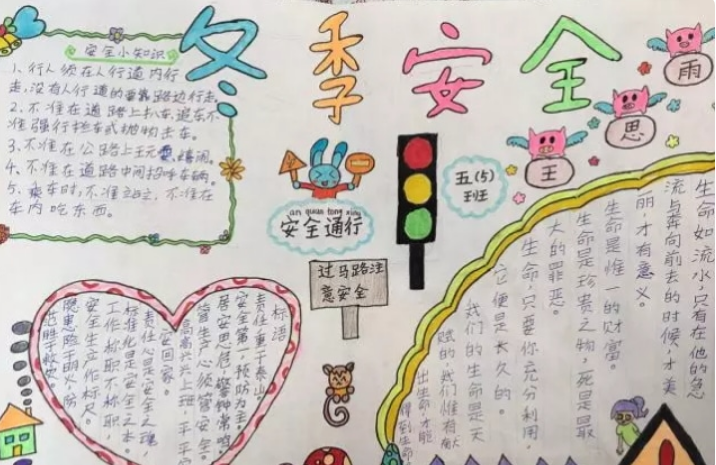 冬季安全
安全小知识
1、行人须在人行道内行
走,没有人行道的靠路边行走。
2、不准在道路上扒车、追车不
准强行拦车或抛物击车。
3、不准在公路上玩耍、嬉闹。
4、不准在道路中间招呼车辆。
5、乘车时,不准站立、不准在
车内吃东西。
an quan tong xing
安全通行
五(5)
班
王
思
雨
过马路注
意安全
标语
责任重于泰山。
安全第一,预防为主。
居安思危,警钟常鸣。
管生产必须管安全。
高高兴兴上班,平平安
安回家。
责任心是安全之魂,
标准化是安全之本。
工作称职不称职,
安全生产作标尺。
隐患险于明火,防
范胜于救灾
生命如流水,只有在他的急
流与奔向前去的时候,才美
丽,才有意义。
生命是惟一的财富。
生命是珍贵之物,死是最
大的罪恶。
生命,只要你充分利用,
它便是长久的。
我们的生命是天
赋的,我们惟有献
出生命,才能
得到生命